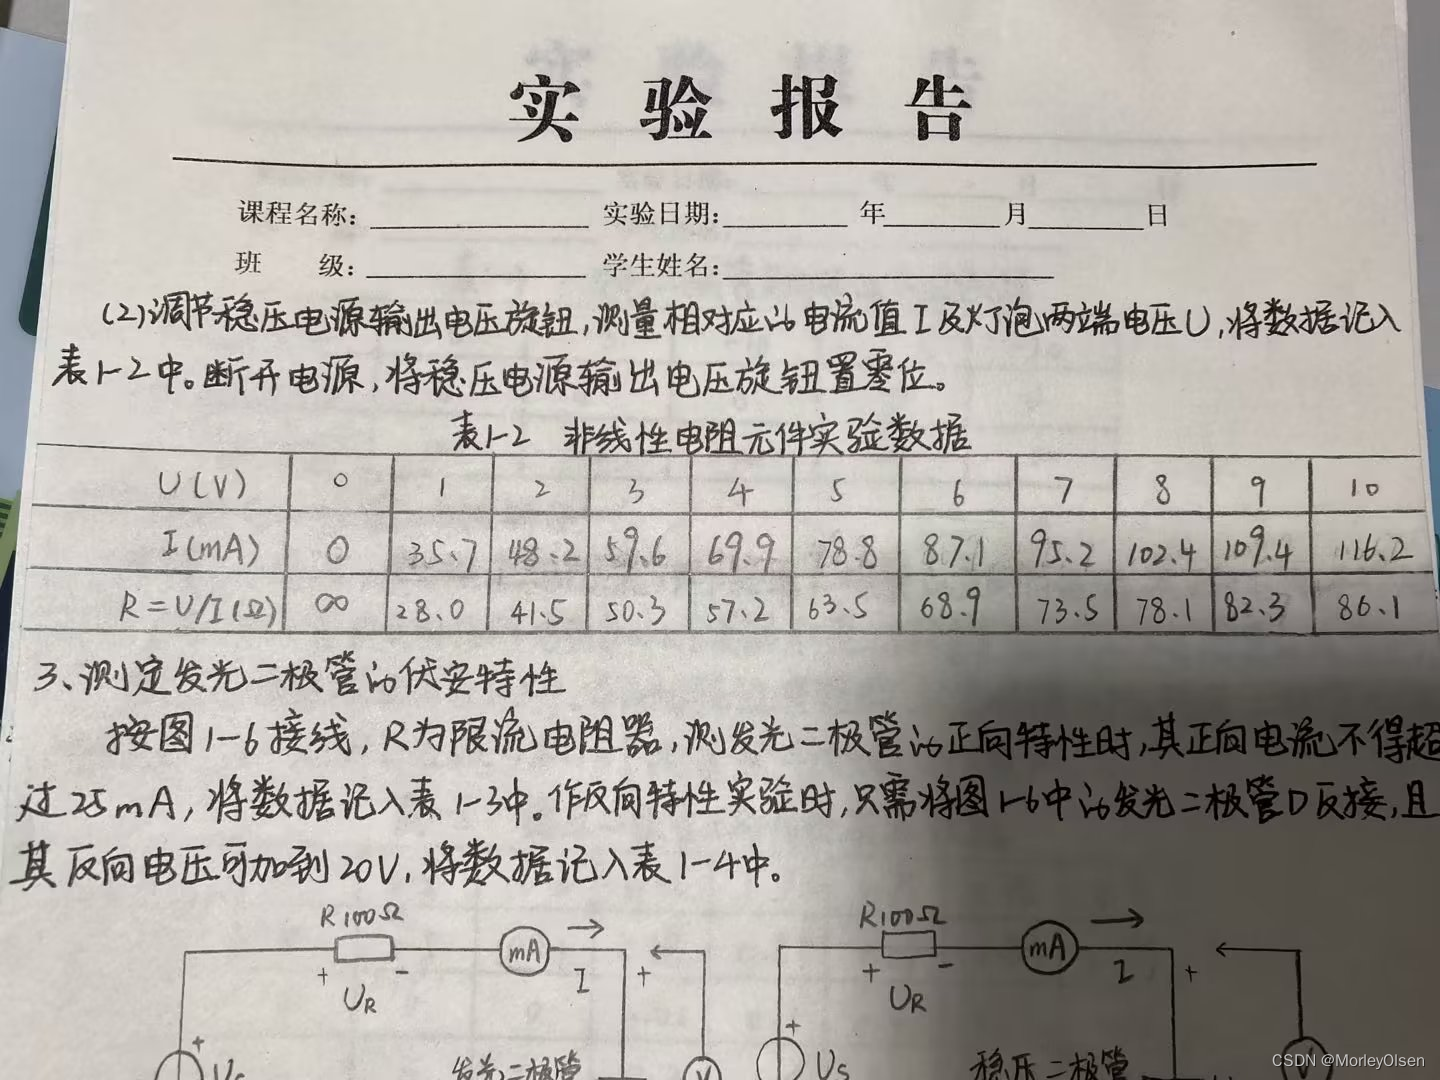 实验报告
课程名称： 实验日期： 年 月 日
班 级： 学生姓名：
(2)调节稳压电源输出电压旋钮,测量相对应的电流值I及灯泡两端电压U,将数据记入
表1-2中。断开电源,将稳压电源输出电压旋钮置零位。
表1-2 非线性电阻元件实验数据
U(V) 0 1 2 3 4 5 6 7 8 9 10
I(mA) 0 35.7 48.2 59.6 69.9 78.8 87.1 95.2 102.4 109.4 116.2
R=U/I(Ω) ∞ 28.0 41.5 50.3 57.2 63.5 68.9 73.5 78.1 82.3 86.1
3、测定发光二极管的伏安特性
按图1-6接线,R为限流电阻器,测发光二极管的正向特性时,其正向电流不得超
过25mA,将数据记入表1-3中。作反向特性实验时,只需将图1-6中的发光二极管D反接,且
其反向电压可加到20V,将数据记入表1-4中。
R100Ω R100Ω
mA mA
+ - I + + - I +
UR UR
+ +
Us 发光二极管 V Us 稳压二极管 V
CSDN @MorleyOlsen